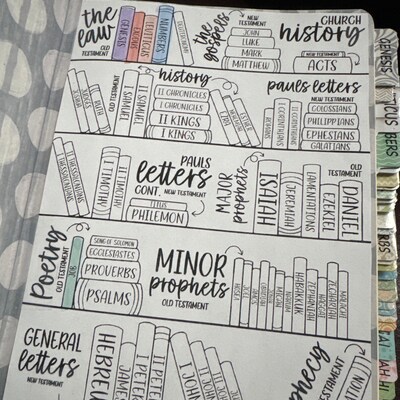 the law
OLD TESTAMENT
GENESIS
EXODUS
LEVITICUS
NUMBERS
DEUTERONOMY
the gospels
NEW TESTAMENT
JOHN
LUKE
MARK
MATTHEW
CHURCH
history
NEW TESTAMENT
ACTS
history
OLD TESTAMENT
JOSHUA
JUDGES
RUTH
I SAMUEL
II SAMUEL
II CHRONICLES
I CHRONICLES
II KINGS
I KINGS
EZRA
NEHEMIAH
ESTHER
pauls letters
NEW TESTAMENT
ROMANS
I CORINTHIANS
II CORINTHIANS
COLOSSIANS
PHILIPPIANS
EPHESIANS
GALATIANS
I THESSALONIANS
II THESSALONIANS
I TIMOTHY
II TIMOTHY
PAULS
letters
CONT.
NEW TESTAMENT
TITUS
PHILEMON
MAJOR
prophets
OLD TESTAMENT
ISAIAH
JEREMIAH
LAMENTATIONS
EZEKIEL
DANIEL
Poetry
OLD TESTAMENT
JOB
SONG OF SOLOMON
ECCLESIASTES
PROVERBS
PSALMS
MINOR
prophets
OLD TESTAMENT
HOSEA
JOEL
AMOS
OBADIAH
JONAH
MICAH
NAHUM
HABAKKUK
ZEPHANIAH
HAGGAI
ZECHARIAH
MALACHI
GENERAL
letters
NEW TESTAMENT
HEBREW
JAMES
I PETER
II PETER
I JOHN
II JOHN
GENESIS